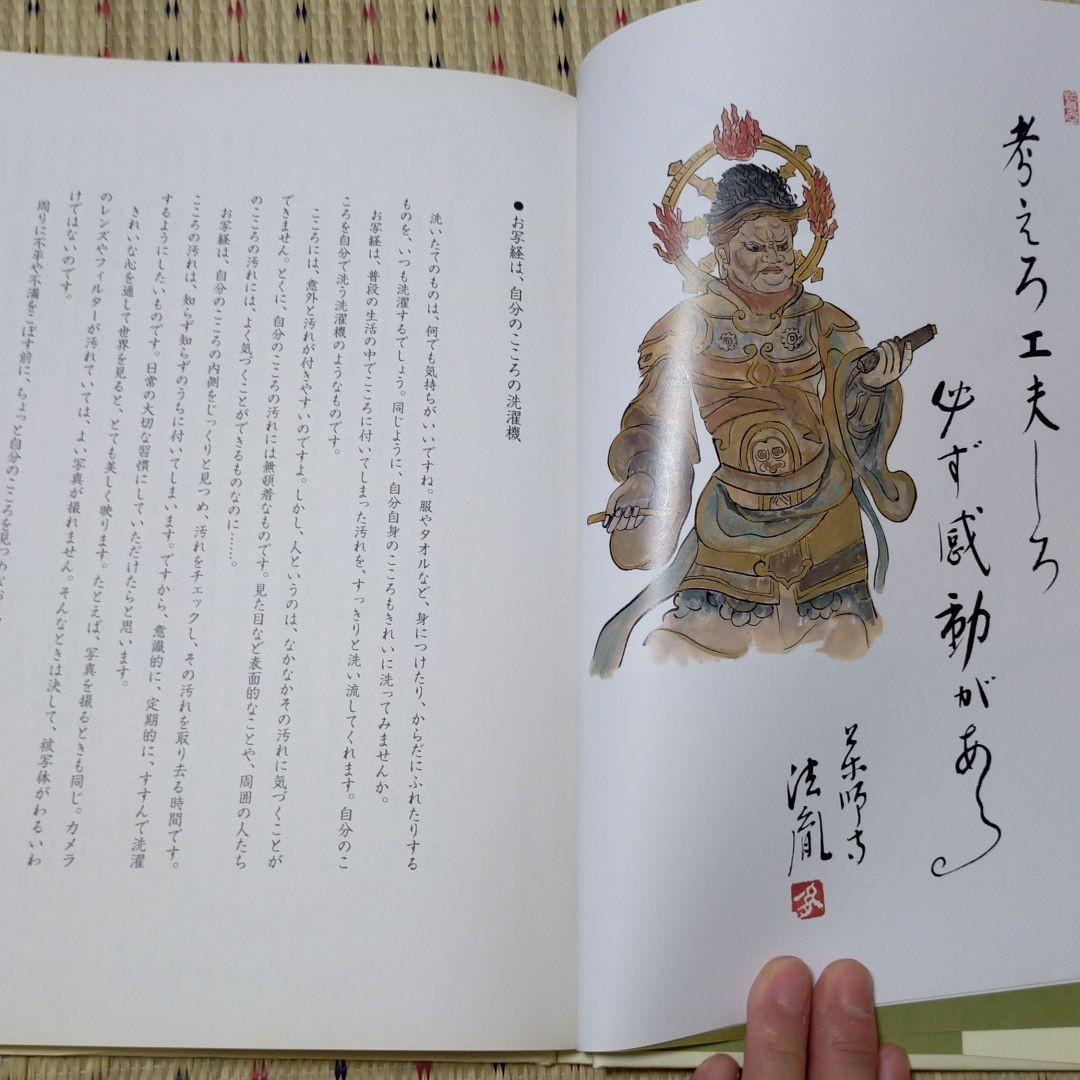 ●お写経は、自分のこころの洗濯機
洗いたてのものは、何でも気持ちがいいですね。服やタオルなど、身につけたり、からだにふれたりする
ものを、いつも洗濯するでしょう。同じように、自分自身のこころもきれいに洗ってみませんか。
お写経は、普段の生活の中でこころに付いてしまった汚れを、すっきりと洗い流してくれます。自分のこ
ころを自分で洗う洗濯機のようなものです。
こころには、意外と汚れが付きやすいのですよ。しかし、人というのは、なかなかその汚れに気づくことが
できません。とくに、自分のこころの汚れには無頓着なものです。見た目など表面的なことや、周囲の人たち
のこころの汚れには、よく気づくことができるものなのに……。
お写経は、自分のこころの内側をじっくりと見つめ、汚れをチェックし、その汚れを取り去る時間です。
こころの汚れは、知らず知らずのうちに付いてしまいます。ですから、意識的に、定期的に、すすんで洗濯
するようにしたいものです。日常の大切な習慣にしていただけたらと思います。
きれいな心を通して世界を見ると、とても美しく映ります。たとえば、写真を撮るときも同じ。カメラ
のレンズやフィルターが汚れていては、よい写真が撮れません。そんなときは決して、被写体がわるいわ
けではないのです。
周りに不平や不満をこぼす前に、ちょっと自分のこころを見つめなお
考えろ工夫しろ
必ず感動がある
薬師寺
法胤